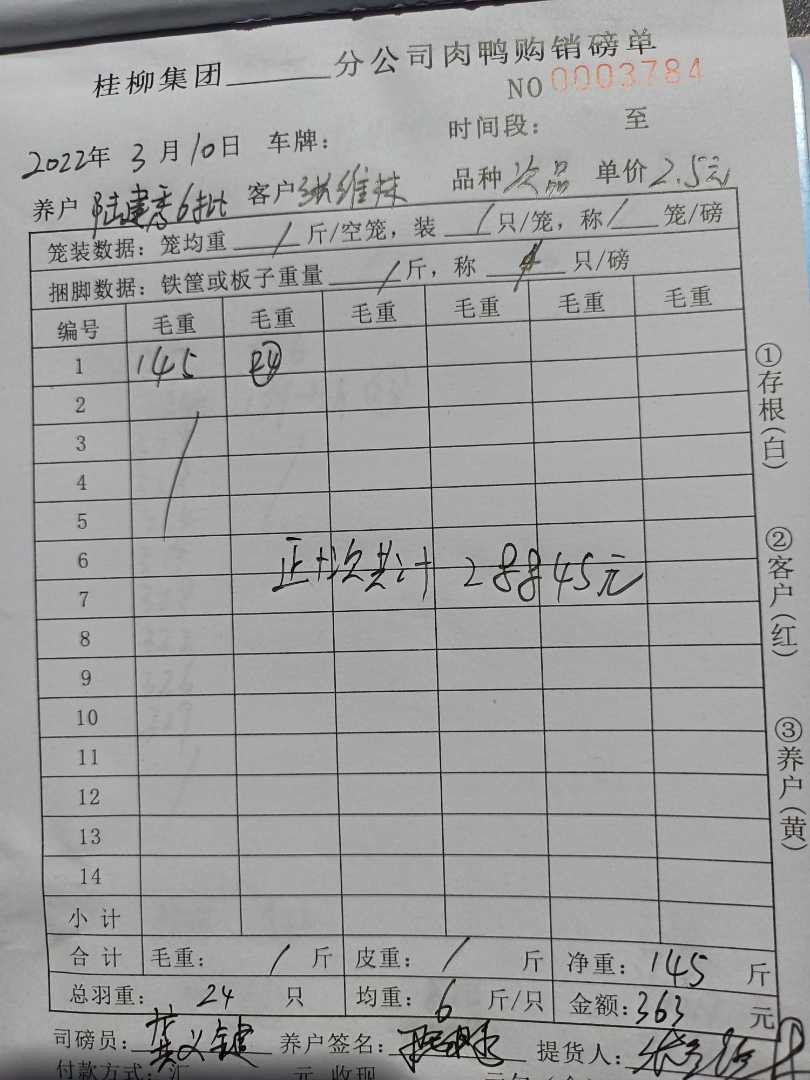 桂柳集团______分公司肉鸭购销磅单
NO 0003784
2022年 3月10日 车牌： 时间段： 至
养户 陆建秀6批 客户 张维林 品种 次品 单价 2.5元
笼装数据：笼均重 / 斤/空笼，装 / 只/笼，称 / 笼/磅
捆脚数据：铁筐或板子重量 / 斤，称 / 只/磅
编号 毛重 毛重 毛重 毛重 毛重 毛重
1 145 24
2
3
4
5
6
正+次共计 28845元
7
8
9
10
11
12
13
14
小计
合计 毛重： / 斤 皮重： / 斤 净重：145 斤
总羽重： 24 只 均重： 6 斤/只 金额：363 元
司磅员： 养户签名： 提货人：
付款方式：汇 元 收现
①存根（白）
②客户（红）
③养户（黄）